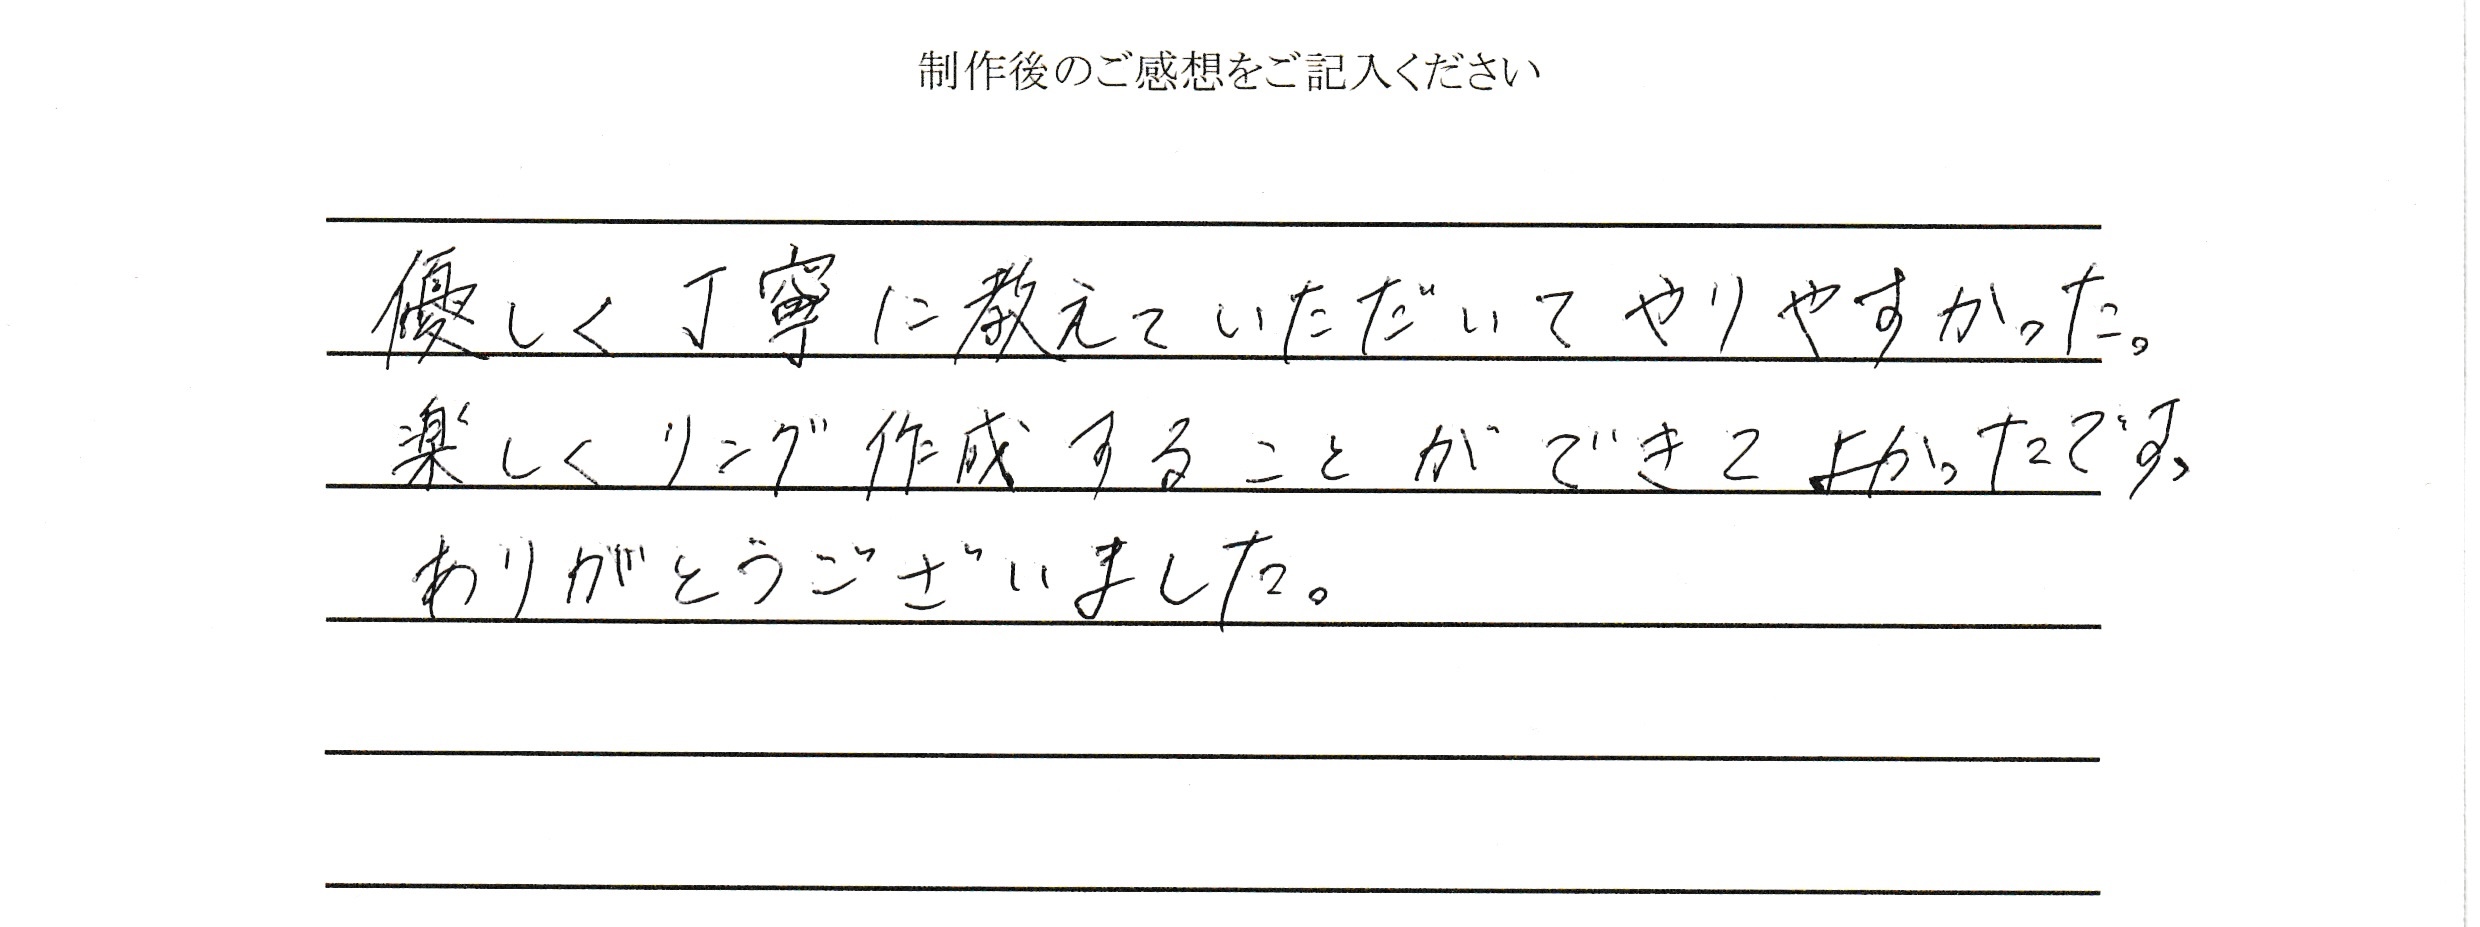 制作後のご感想をご記入ください
優しく丁寧に教えていただいてやりやすかった。
楽しくリング作成することができてよかったです。
ありがとうございました。